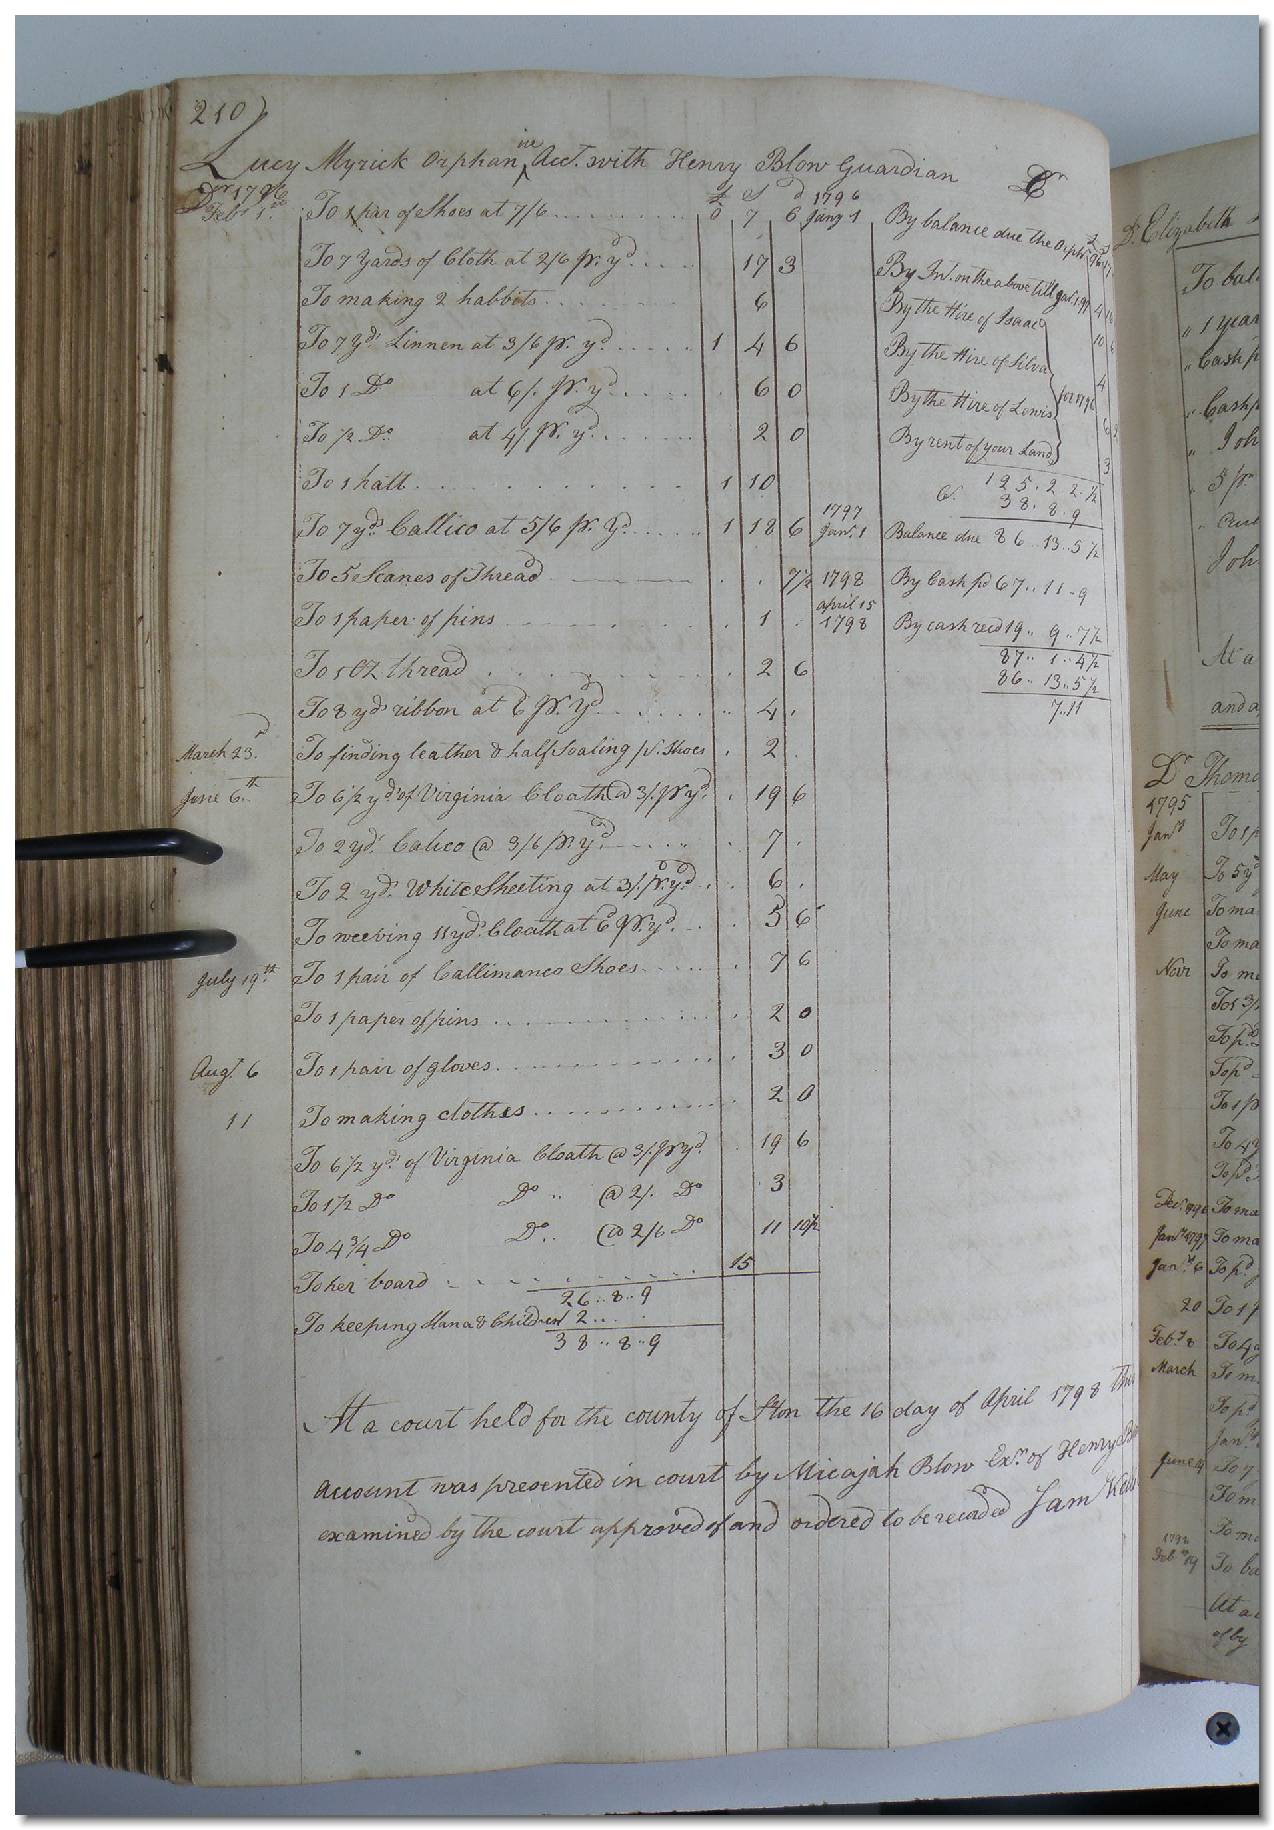 210
Lucy Myrick Orphan in Acct. with Henry Blow Guardian Cr
Dr 1796 £ S d 1796
Feby 1st To 1 par of Shoes at 7/6 0 7 6 Jany 1 By balance due the Orphn
To 7 Yards of Cloth at 2/6 pr. yd 17 3 By Int. on the above till
To making 2 habbits 6 By the Hire of Isaac
To 7 yds Linnen at 3/6 pr. yd 1 4 6 By the Hire of Silva
To 1 Do at 6/. pr. yd 6 0 By the Hire of Lewis for 1796
To 1/2 Do. at 4/ pr. yd 2 0 By rent of your Land
To 1 hatt 1 10 125.2 2.1/2
38.8.9
To 7 yds Callico at 5/6 pr. yd 1 18 6 1797 Jany. 1 Balance due 86..13..5 1/2
To 5 Scanes of Thread 7 1/2 1798 By Cash pd 67..11..9
To 1 paper of pins 1 april 15 1798 By cash recd 19..9..7 1/2
87..1..4 1/2
To 1 OZ thread 2 6 86..13..5 1/2
To 8 yds ribbon at 6 pr. yd 4 7..11
March 23d To finding leather & half soaling pr. shoes 2
June 6th To 6 1/2 yds of Virginia Cloath @ 3/. pr yd. 19 6
To 2 yds. Calico @ 3/6 pr. yd 7
To 2 yds. White Sheeting at 3/. pr. yd 6
To weeving 11 yds. Cloath at 6d pr. yd. 5 6
July 19th To 1 pair of Callimanco Shoes 7 6
To 1 paper of pins 2 0
Augt. 6 To 1 pair of gloves 3 0
11 To making clothes 2 0
To 6 1/2 yds. of Virginia Cloath @ 3/. pr yd. 19 6
To 1 1/2 Do Do.. @ 2/. Do 3
To 4 3/4 Do Do.. @ 2/6 Do 11 10 1/2
To her board 15
26..8..9
To keeping Hana & Children 12..
38..8..9
At a court held for the county of Ston the 16 day of April 1798 this
account was presented in court by Micajah Blow Exr. of Henry
examined by the court approved of and ordered to be recorded Sam
Dr. Elizabeth
To bal
" 1 year
" Cash p
" Cash p
" Joh
Joh
At a
and a
Dr Thoma
1795
Jany To 1 p
May To 5 yd
June To ma
To ma
Novr To m
To 1 3/
To pd
To pd
To 1 p
To 4 y
To pd
To ma
Jany 1797 To ma
Jany 6 To pd
20 To 1 p
Feby 8 To 4
March To m
To pd
June To 7
To m
To m
To ba
At a
of by